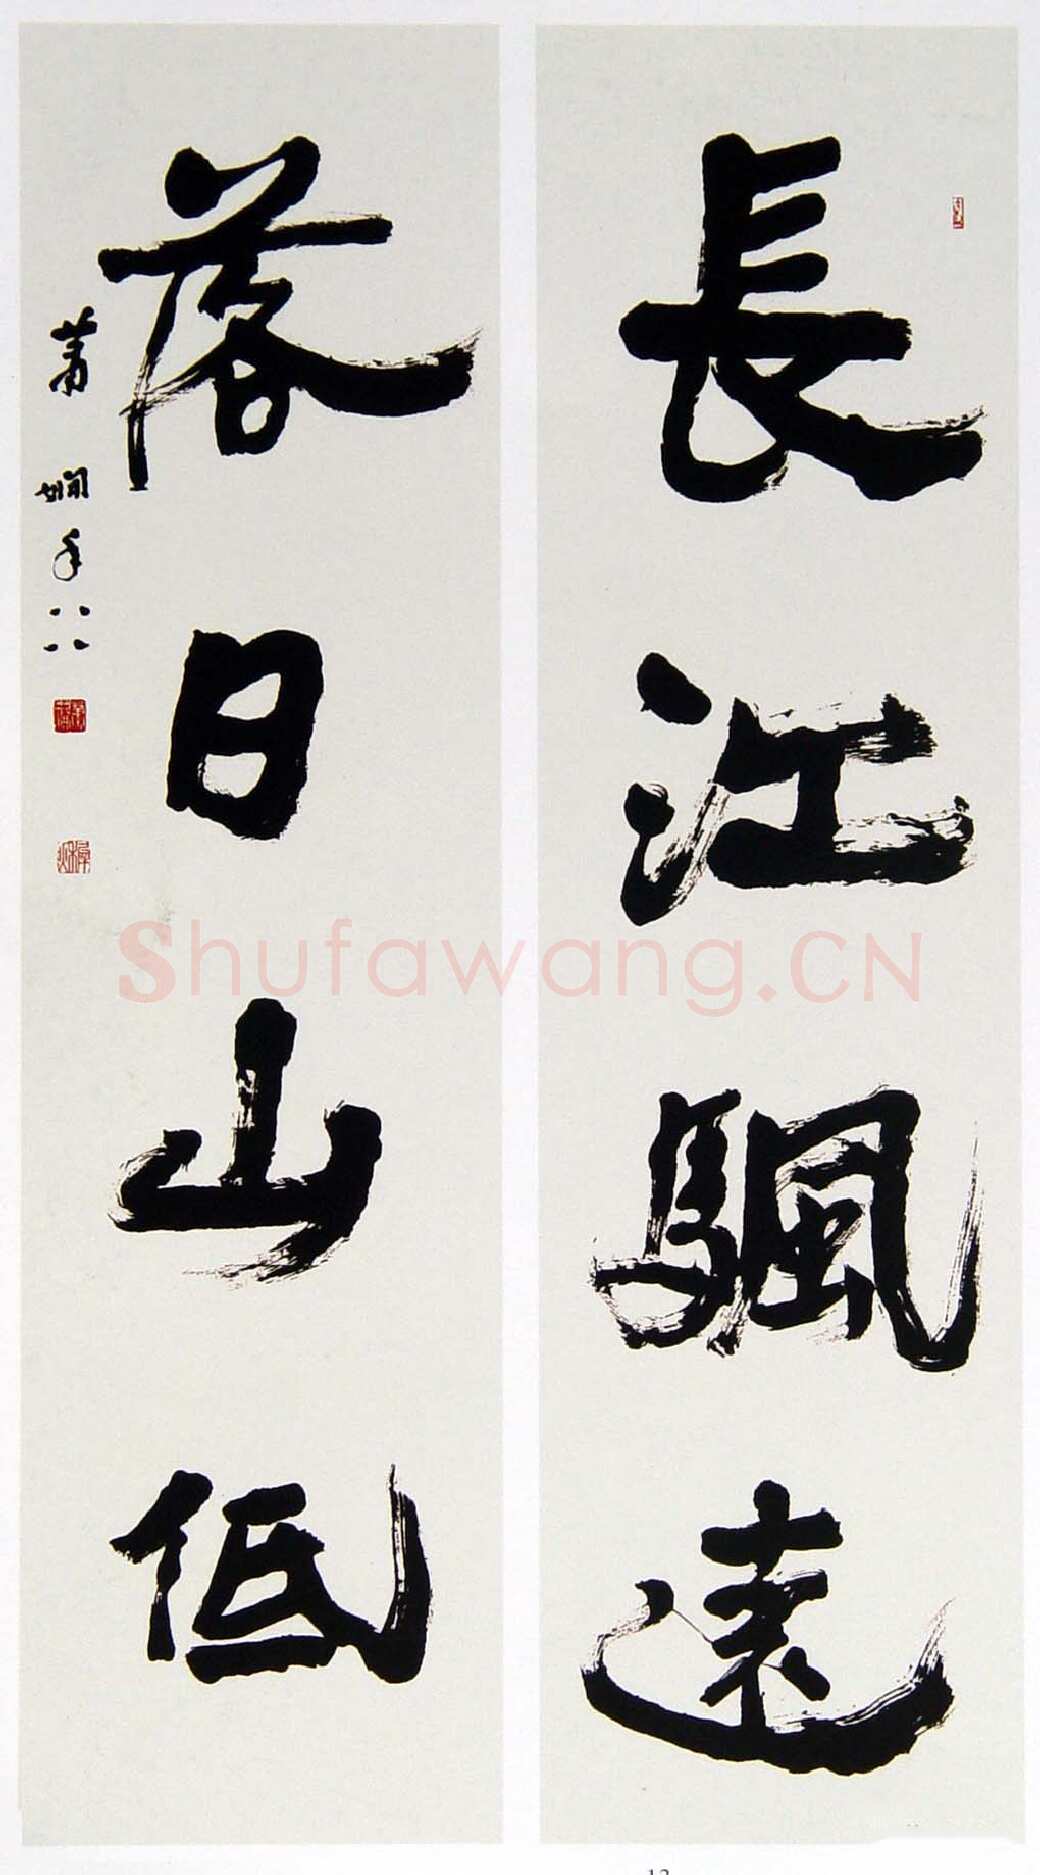 長江颿遠
落日山低
蕭嫻年八八
Shufawang.CN
13